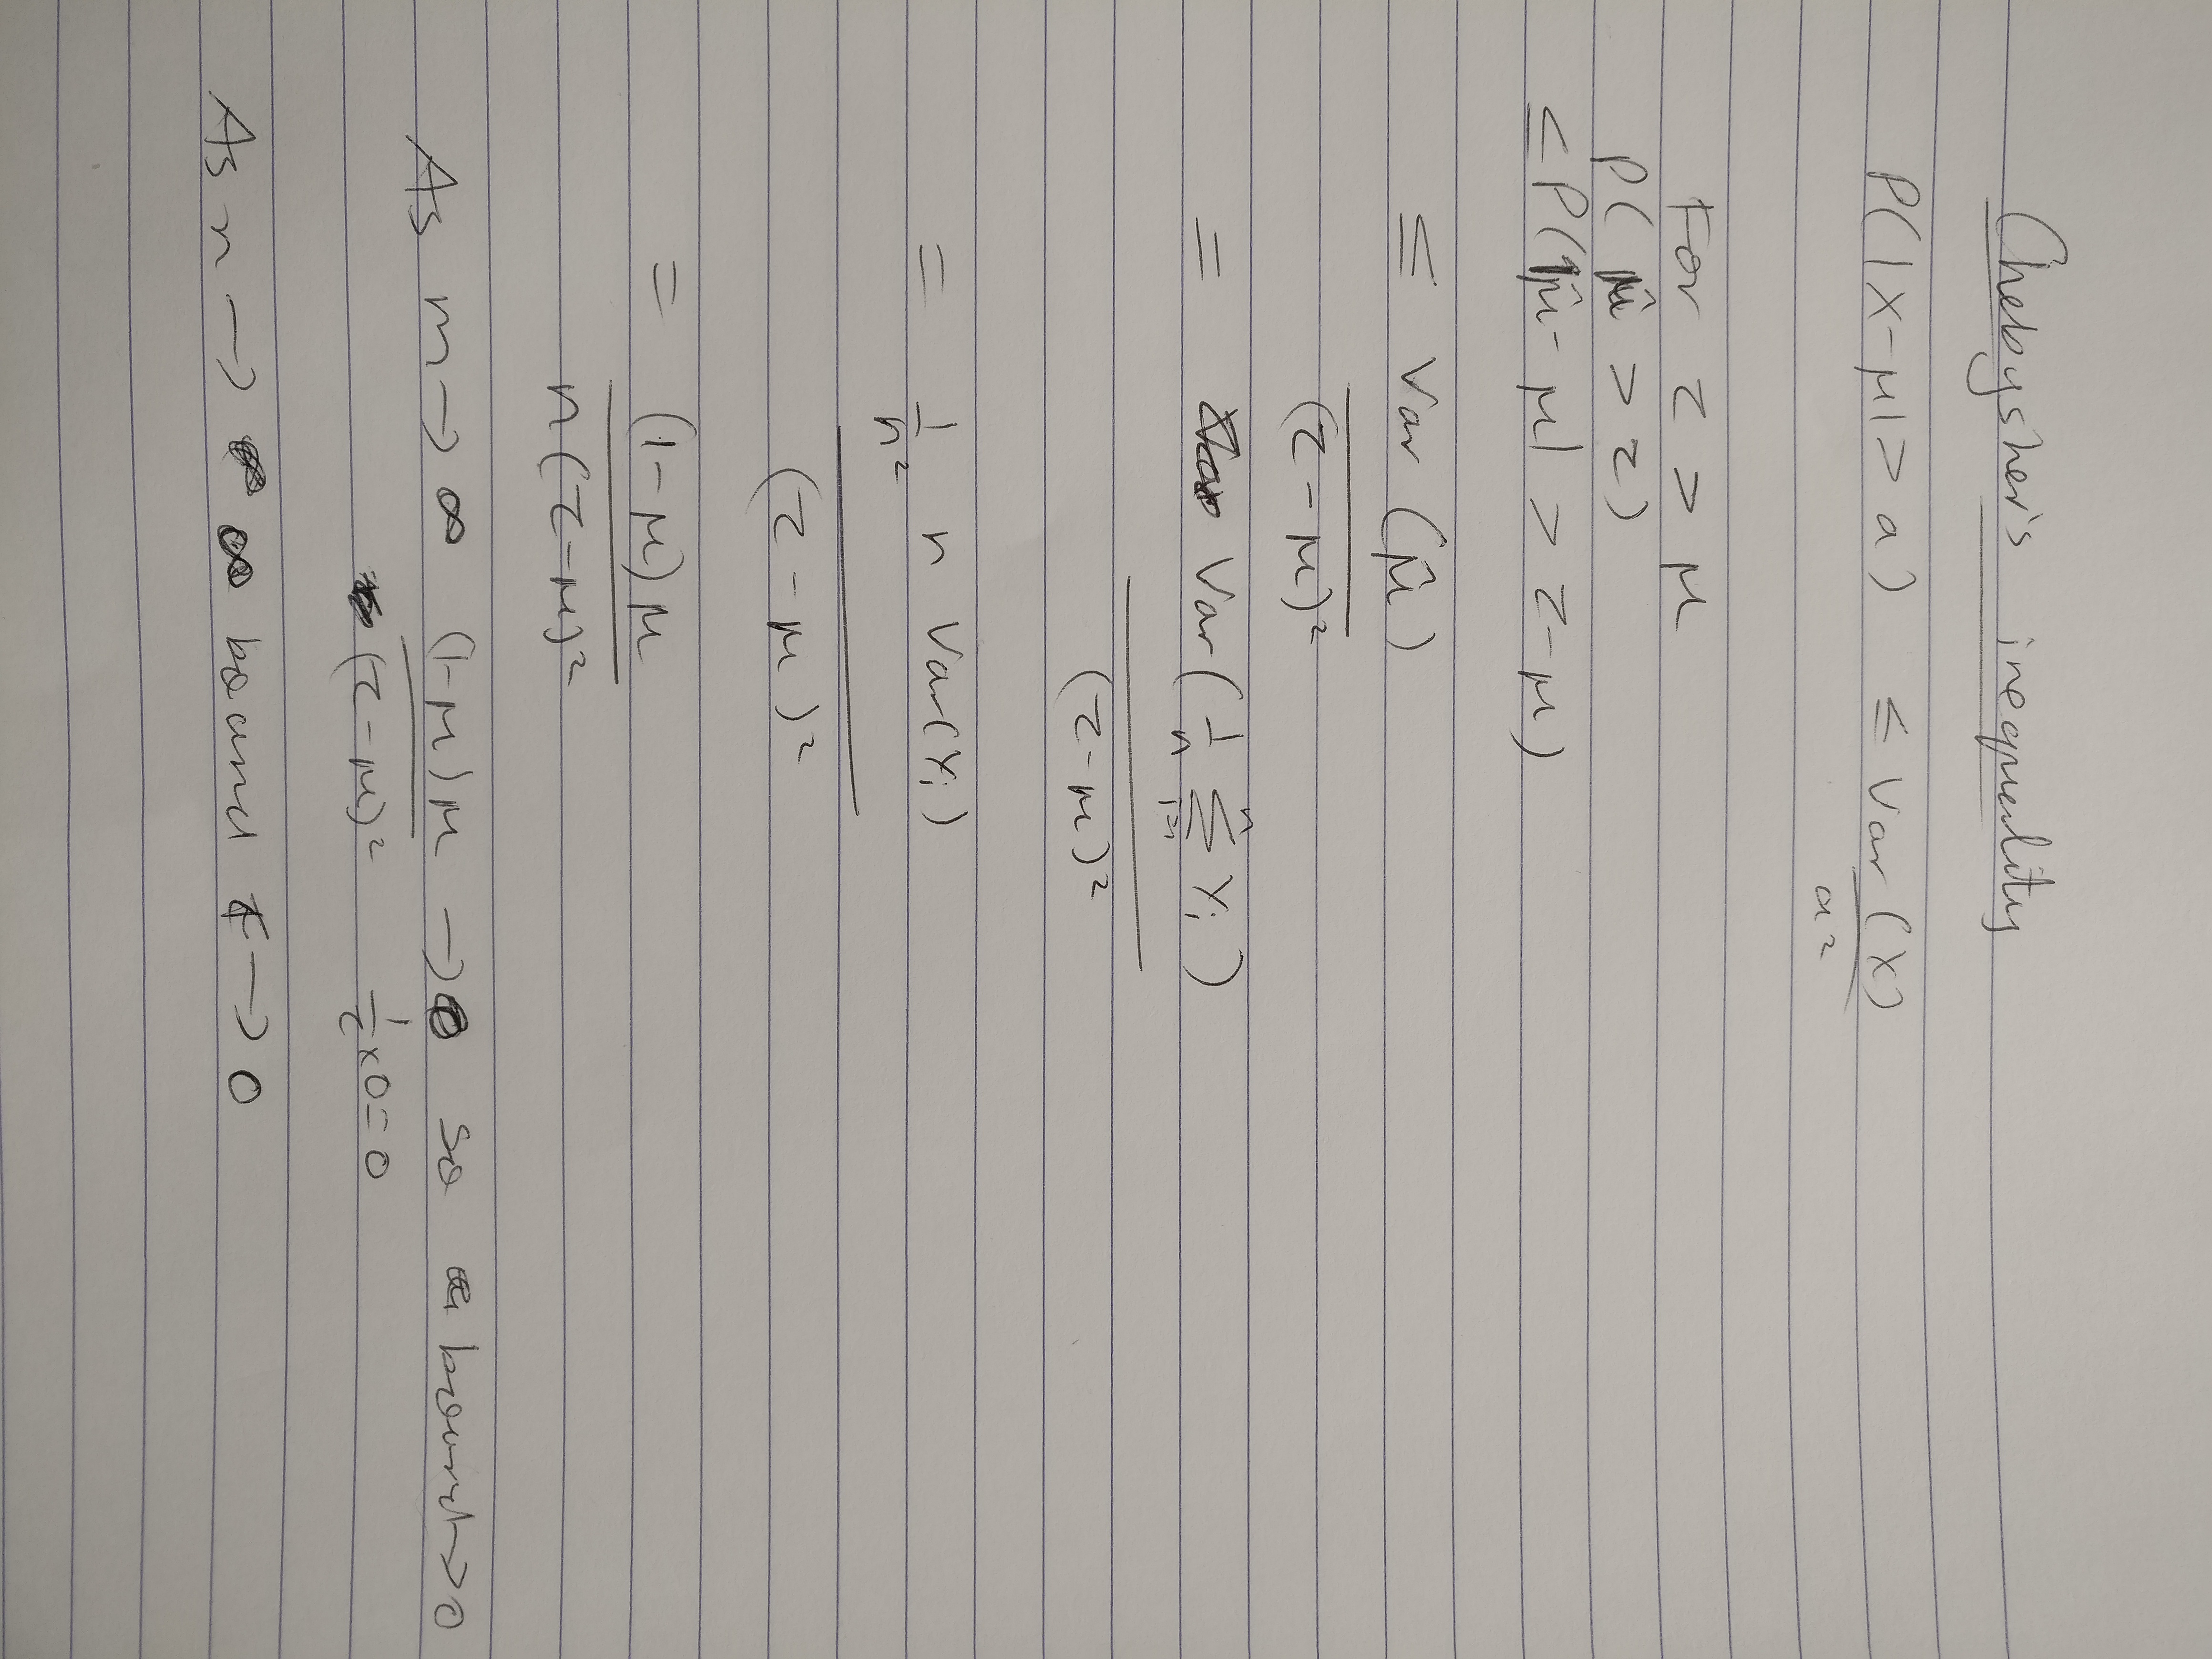 Chebyshev's inequality
P(|X-μ| > a) ≤ Var(X)
a²
For z > μ
P(μ̂ > z)
≤ P(|μ̂ - μ| > z-μ)
≤ Var(μ̂)
(z-μ)²
= Var(1/n Σⁿᵢ₌₁ Yᵢ)
(z-μ)²
= 1/n² n Var(Yᵢ)
(z-μ)²
= (1-μ)μ
n(z-μ)²
As m → ∞ (1-μ)μ → 0 so bound → 0
(z-μ)² 1/z × 0 = 0
As n → ∞ bound → 0